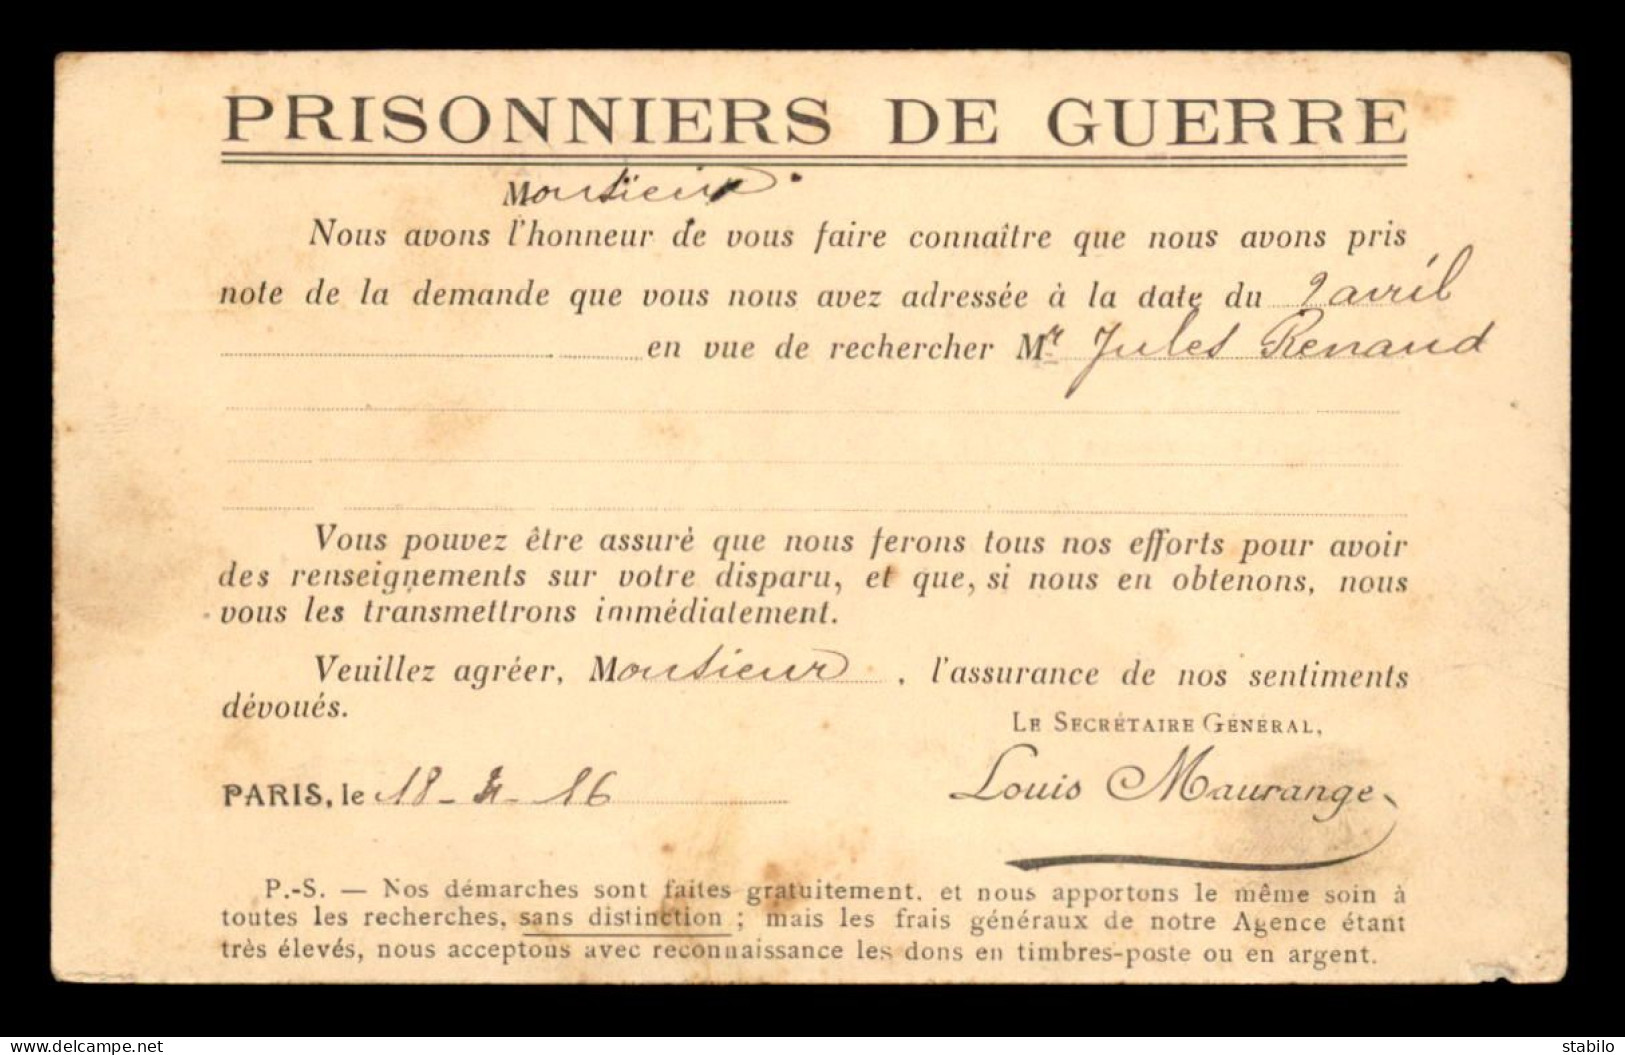 PRISONNIERS DE GUERRE
Monsieur
Nous avons l'honneur de vous faire connaître que nous avons pris
note de la demande que vous nous avez adressée à la date du 9 avril
en vue de rechercher Mr Jules Renaud
Vous pouvez être assuré que nous ferons tous nos efforts pour avoir
des renseignements sur votre disparu, et que, si nous en obtenons, nous
vous les transmettrons immédiatement.
Veuillez agréer, Monsieur, l'assurance de nos sentiments
dévoués.
LE SECRÉTAIRE GÉNÉRAL,
PARIS, le 18-4-16
Louis Maurange
P.-S. — Nos démarches sont faites gratuitement, et nous apportons le même soin à
toutes les recherches, sans distinction ; mais les frais généraux de notre Agence étant
très élevés, nous acceptons avec reconnaissance les dons en timbres-poste ou en argent.
www.delcampe.net
stabilo